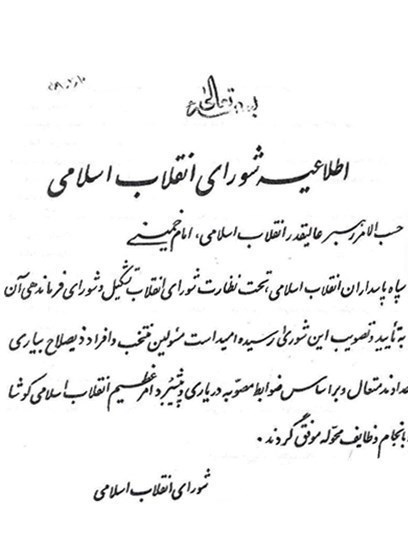 بسمه تعالی
اطلاعیه شورای انقلاب اسلامی
حسب الامر رهبر عالیقدر انقلاب اسلامی، امام خمینی
سپاه پاسداران انقلاب اسلامی، تحت نظارت شورای انقلاب تشکیل و شورای فرماندهی آن
به تأیید و تصویب این شوری رسیده امید است مسئولین منتخب و افراد ذیصلاح بیاری
خداوند متعال و براساس ضوابط مصوبه در یاری و پیشبرد امر عظیم انقلاب اسلامی کوشا
بانجام وظایف محوله موفق گردند.
شورای انقلاب اسلامی